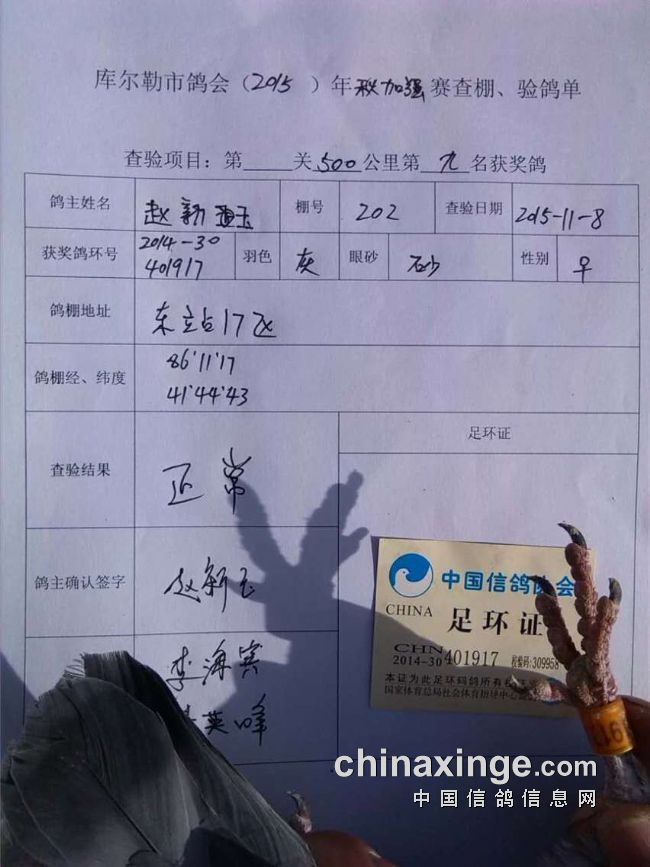 库尔勒市鸽会（2015 ）年秋加强赛查棚、验鸽单
查验项目：第 关500公里第 九 名获奖鸽
鸽主姓名 赵新玉 棚号 202 查验日期 2015-11-8
获奖鸽环号 2014-30 401917 羽色 灰 眼砂 砂 性别 ♀
鸽棚地址 东站17
鸽棚经、纬度 86°11'17
41°44'43
足环证
查验结果 正常
鸽主确认签字 赵新玉
李海宾
英峰
中国信鸽协会
CHINA 足环证
CHN
2014-30 401917 校验码：309958
本证为此足环码鸽所有权
国家体育总局社会体育指导中心
16
chinaxinge.com
中国信鸽信息网